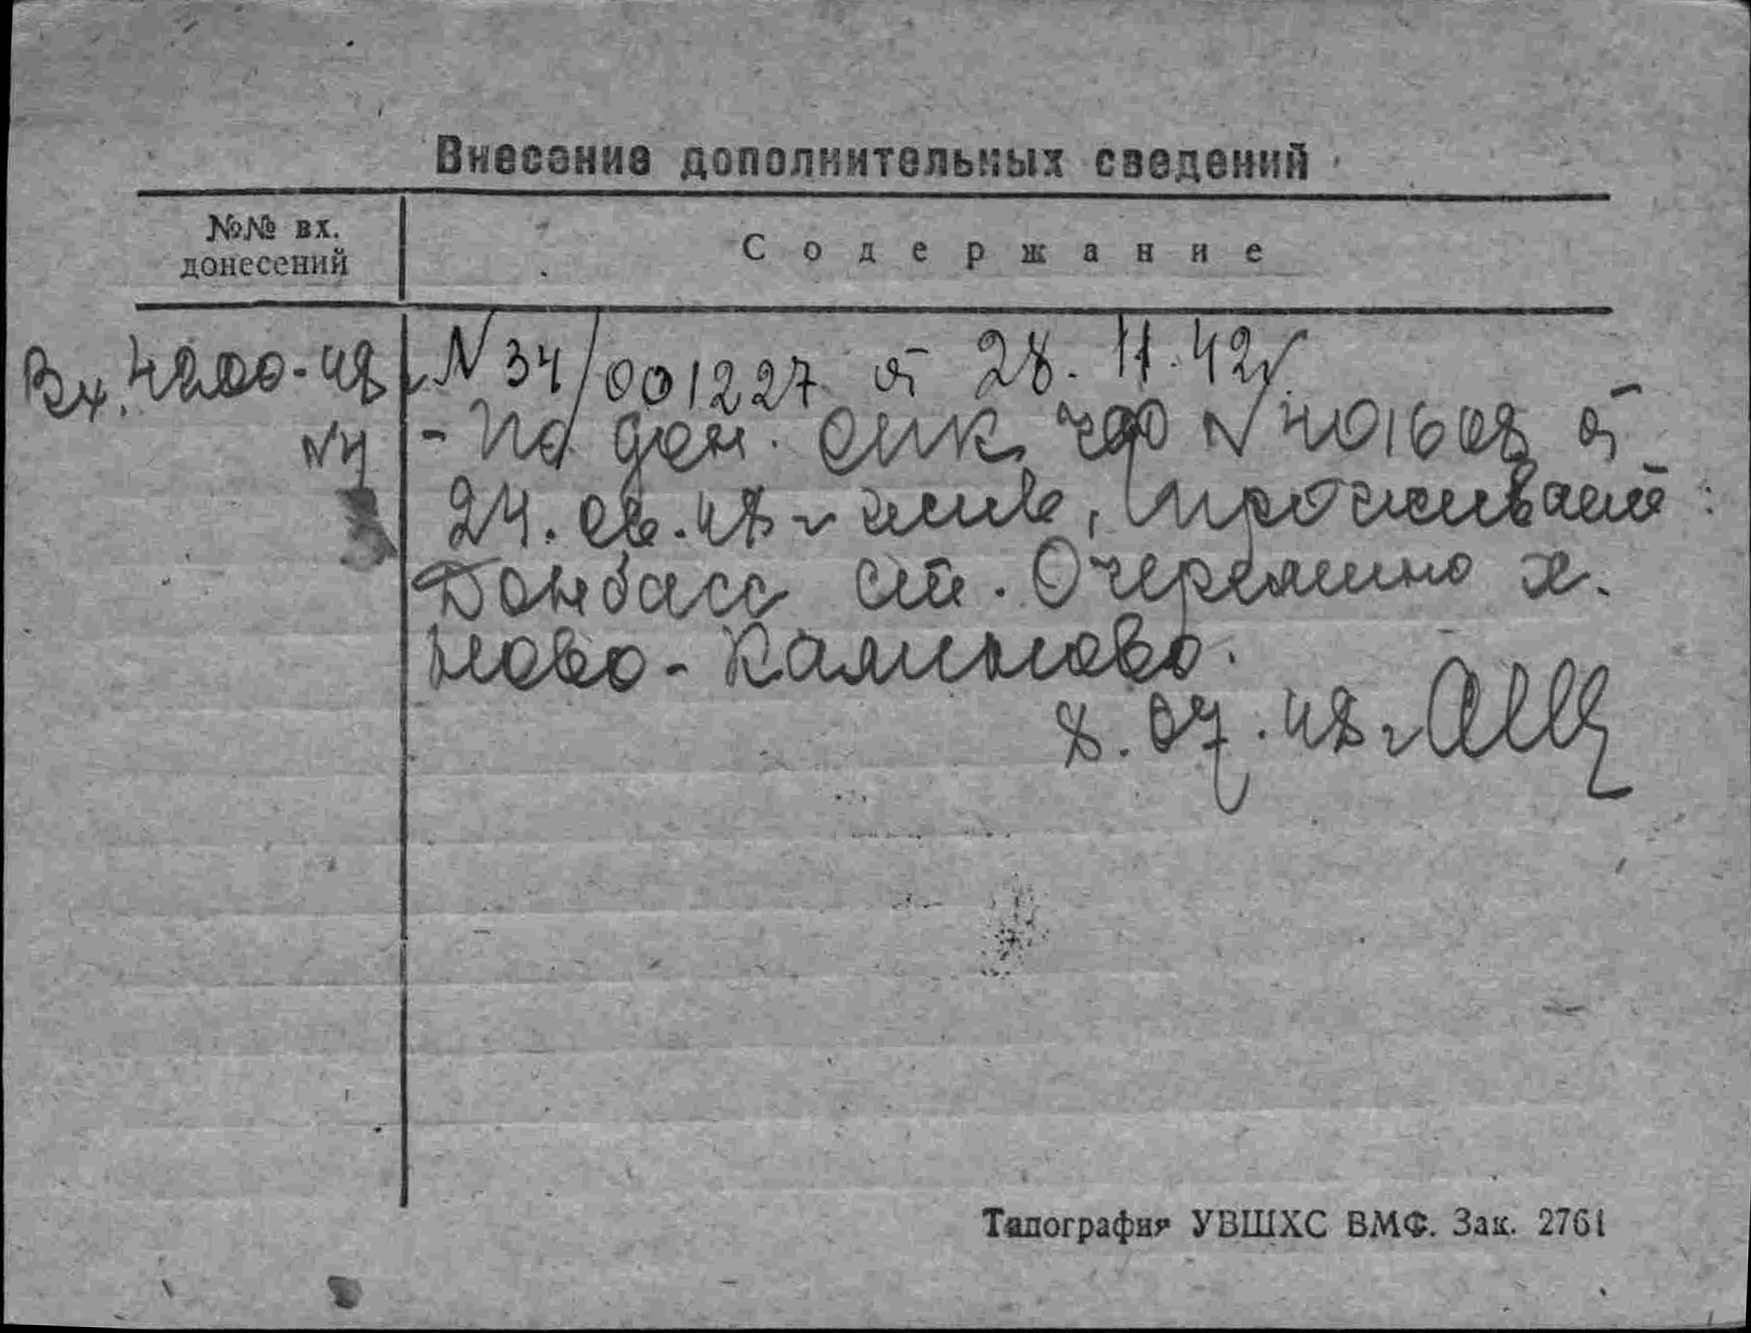 Внесение дополнительных сведений
№№ вх. донесений
Содержание
Вх. 4200-48
N 34/001227 от 28.11.42г.
- По дон. N 401608 от
24.06.48г жив, проживает:
Донбасс ст. Очеретино х.
Ново-Калиново.
8.07.48г
Типография УВШХС ВМФ. Зак. 2761